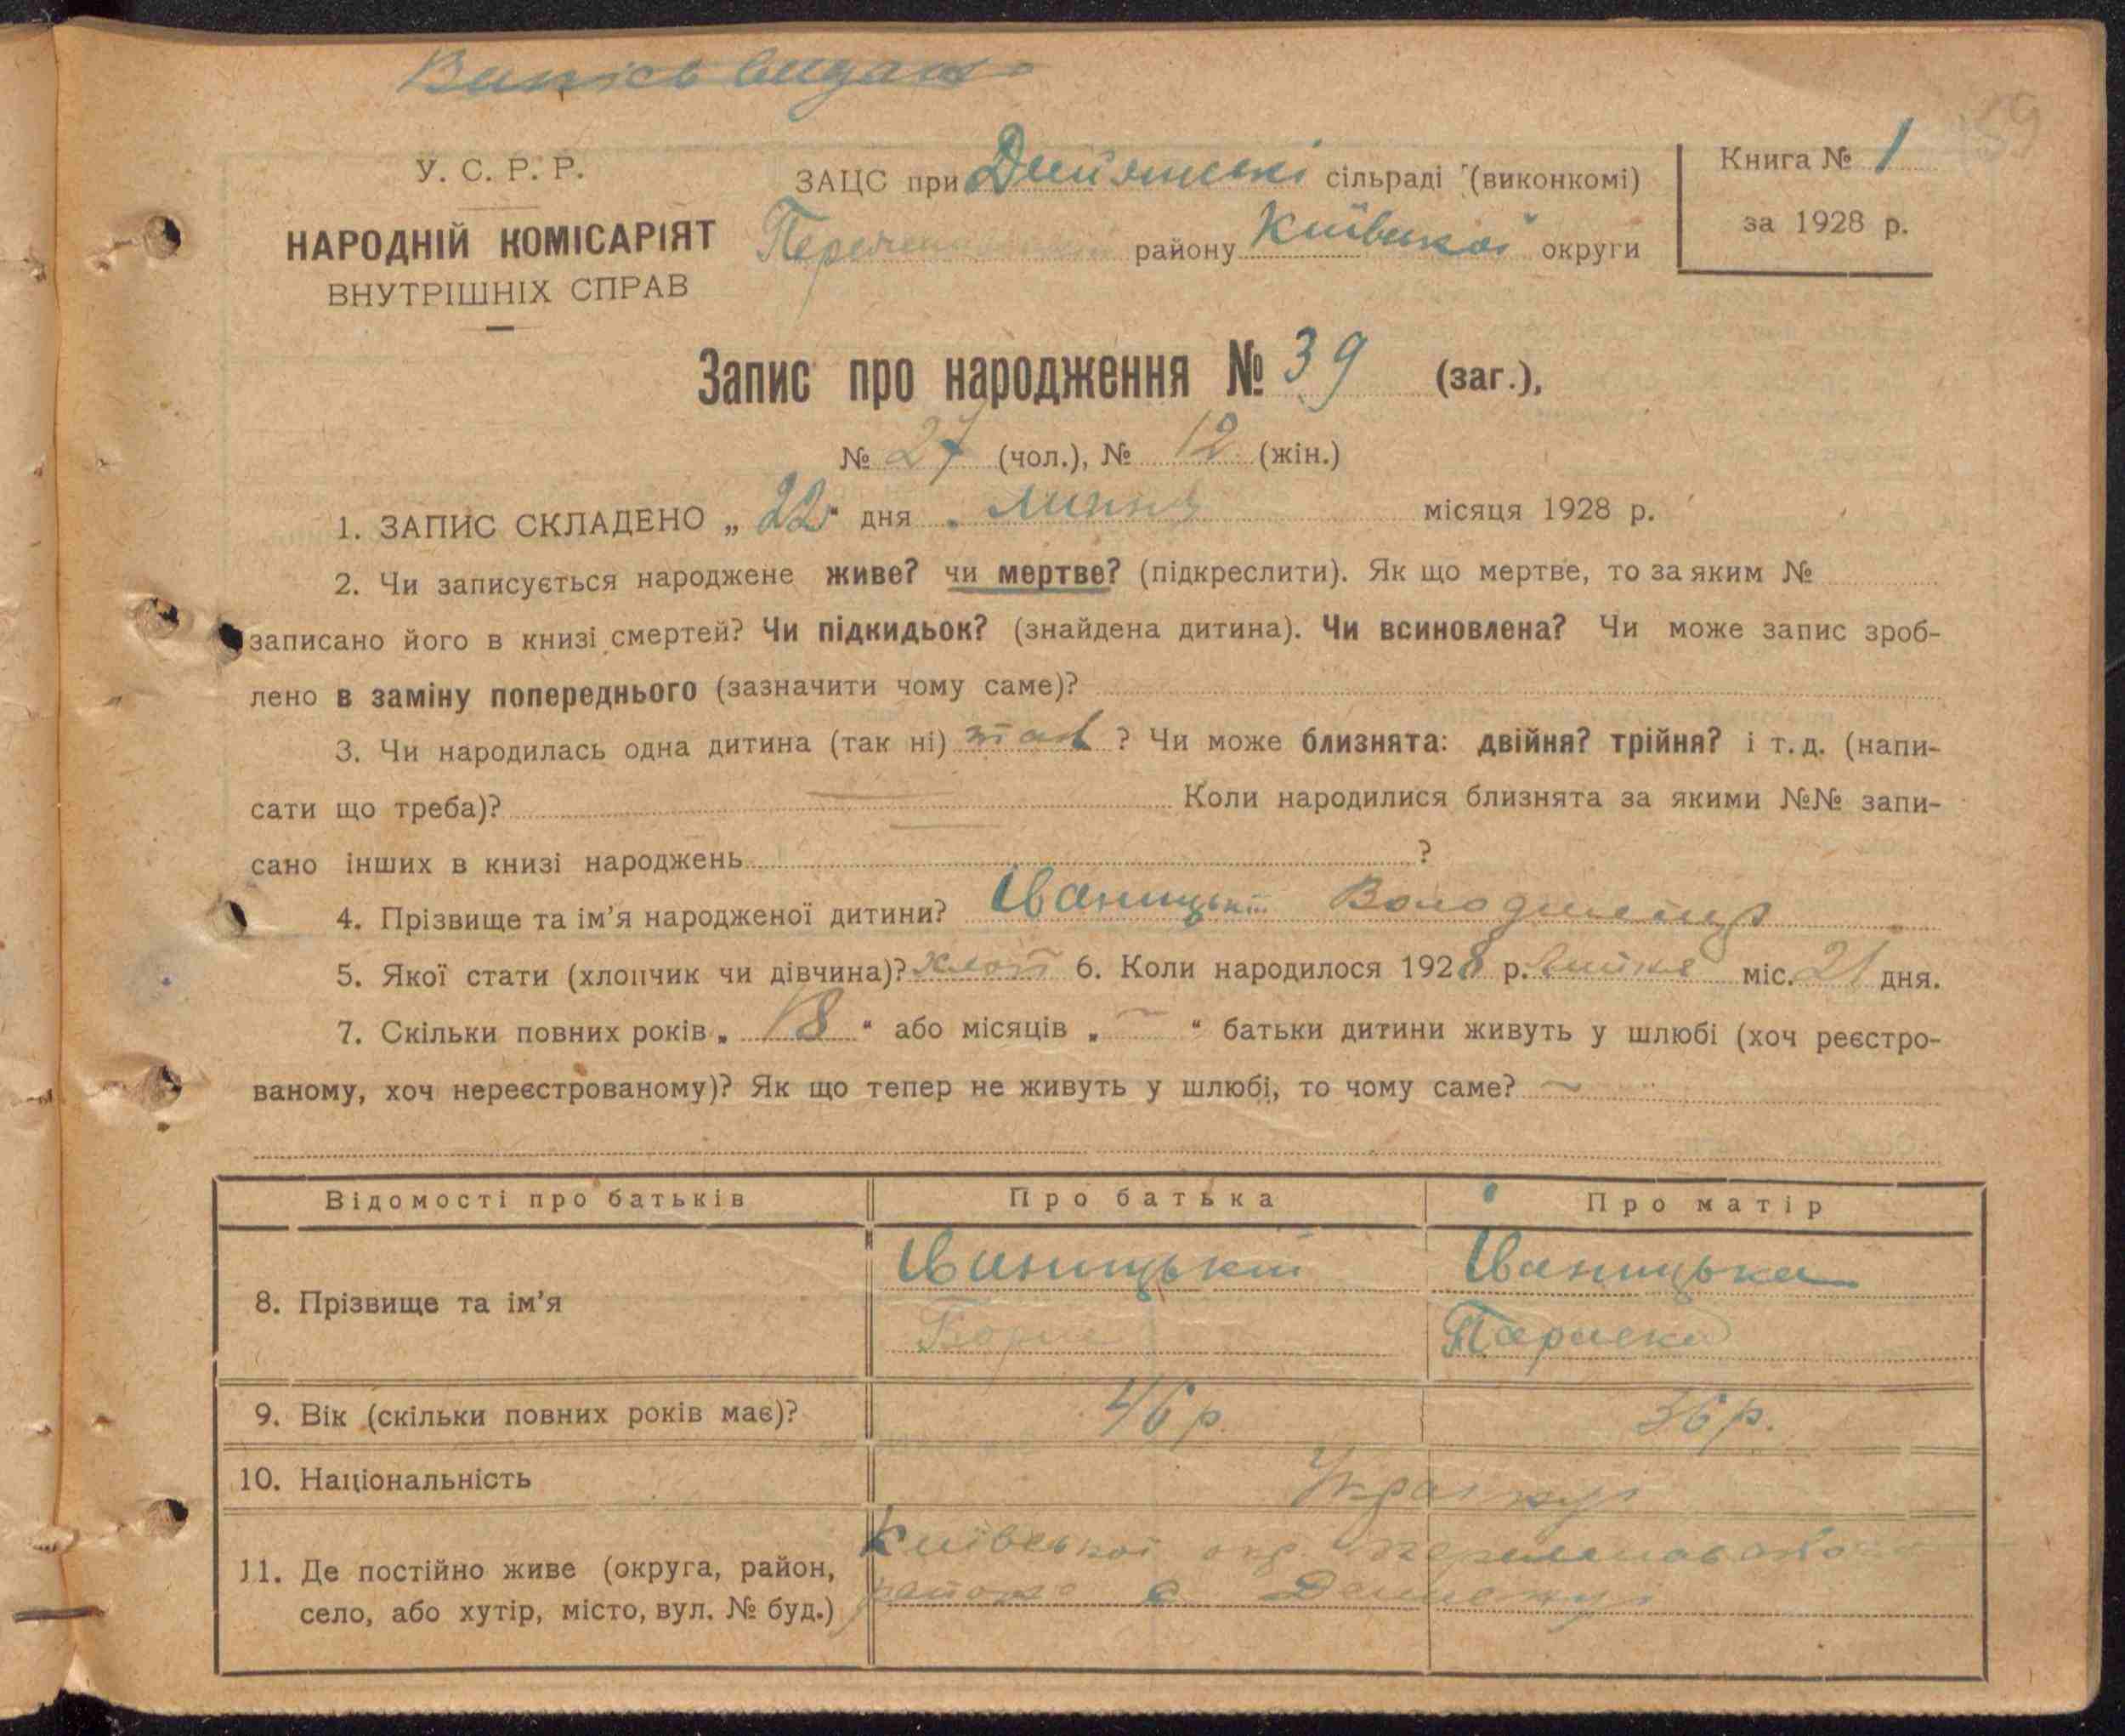 Випись видано
59
У. С. Р. Р.
НАРОДНІЙ КОМІСАРІЯТ
ВНУТРІШНІХ СПРАВ
ЗАЦС при сільраді (виконкомі)
району Київської округи
Книга № 1
за 1928 р.
Запис про народження № 39 (заг.),
№ 27 (чол.), № 12 (жін.)
1. ЗАПИС СКЛАДЕНО „ 22 " дня липня місяця 1928 р.
2. Чи записується народжене живе? чи мертве? (підкреслити). Як що мертве, то за яким №
записано його в книзі смертей? Чи підкидьок? (знайдена дитина). Чи всиновлена? Чи може запис зроб-
лено в заміну попереднього (зазначити чому саме)?
3. Чи народилась одна дитина (так ні) так ? Чи може близнята: двійня? трійня? і т. д. (напи-
сати що треба)? Коли народилися близнята за якими №№ запи-
сано інших в книзі народжень ?
4. Прізвище та ім'я народженої дитини? Іваницький Володимир
5. Якої стати (хлопчик чи дівчина)? хлоп 6. Коли народилося 1928 р. липня міс. 21 дня.
7. Скільки повних років „ 18 " або місяців „ — " батьки дитини живуть у шлюбі (хоч реєстро-
ваному, хоч нереєстрованому)? Як що тепер не живуть у шлюбі, то чому саме? —
Відомості про батьків Про батька Про матір
8. Прізвище та ім'я Іваницький Іваницька
Параска
9. Вік (скільки повних років має)? 46 р. 36 р.
10. Національність Українці
11. Де постійно живе (округа, район, Київської окр.
село, або хутір, місто, вул. № буд.) району с.